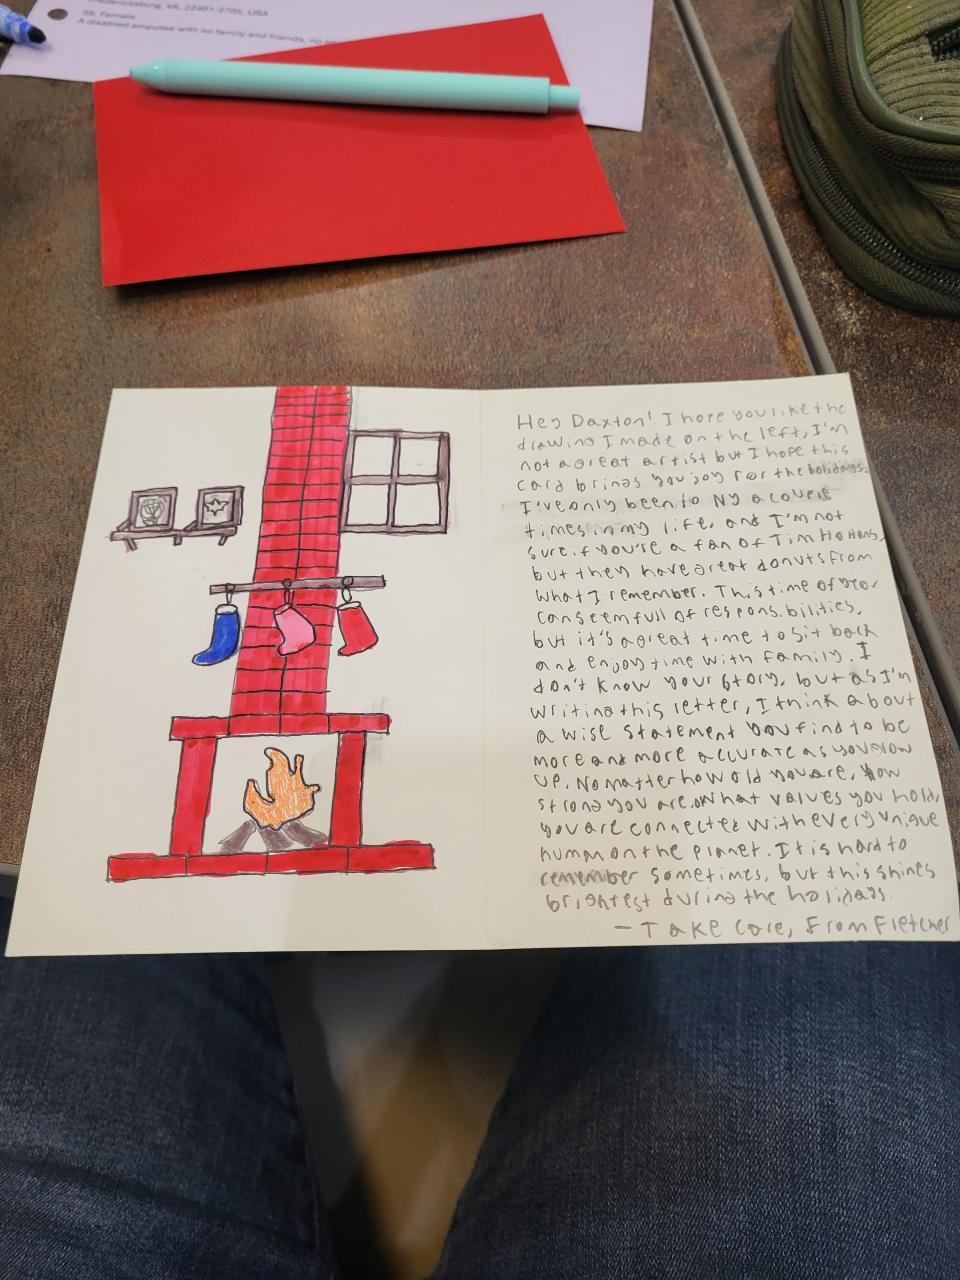 Fredericksburg, VA, 22401-2705, USA
59, Female
A disabled amputee with no family and friends, no
Hey Daxton! I hope you like the
drawing I made on the left, I'm
not a great artist but I hope this
card brings you joy for the holidays.
I've only been to NY a couple
times in my life, and I'm not
sure if you're a fan of Tim Hortons,
but they have great donuts from
what I remember. This time of year
can seem full of responsibilities,
but it's a great time to sit back
and enjoy time with family. I
don't know your story, but as I'm
writing this letter, I think about
a wise statement you find to be
more and more accurate as you grow
up. No matter how old you are, how
strong you are, what values you hold,
you are connected with every unique
human on the planet. It is hard to
remember sometimes, but this shines
brightest during the holidays.
- Take Care, From Fletcher